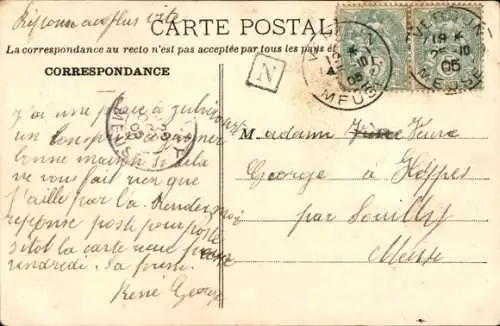 Réponse au plus vite
CARTE POSTALE
La correspondance au recto n'est pas acceptée par tous les pays
CORRESPONDANCE
N
VERDUN
19 *
25 - 10
05
MEUSE
MEUSE
J'ai une place à
bonne maison si cela
ne vous fait rien que
j'aille par là. Rendez moi
réponse poste pour poste
sitot la carte reçue pour
vendredi. Ça presse
René George
Madame Veuve
George à
par Souilly
Meuse